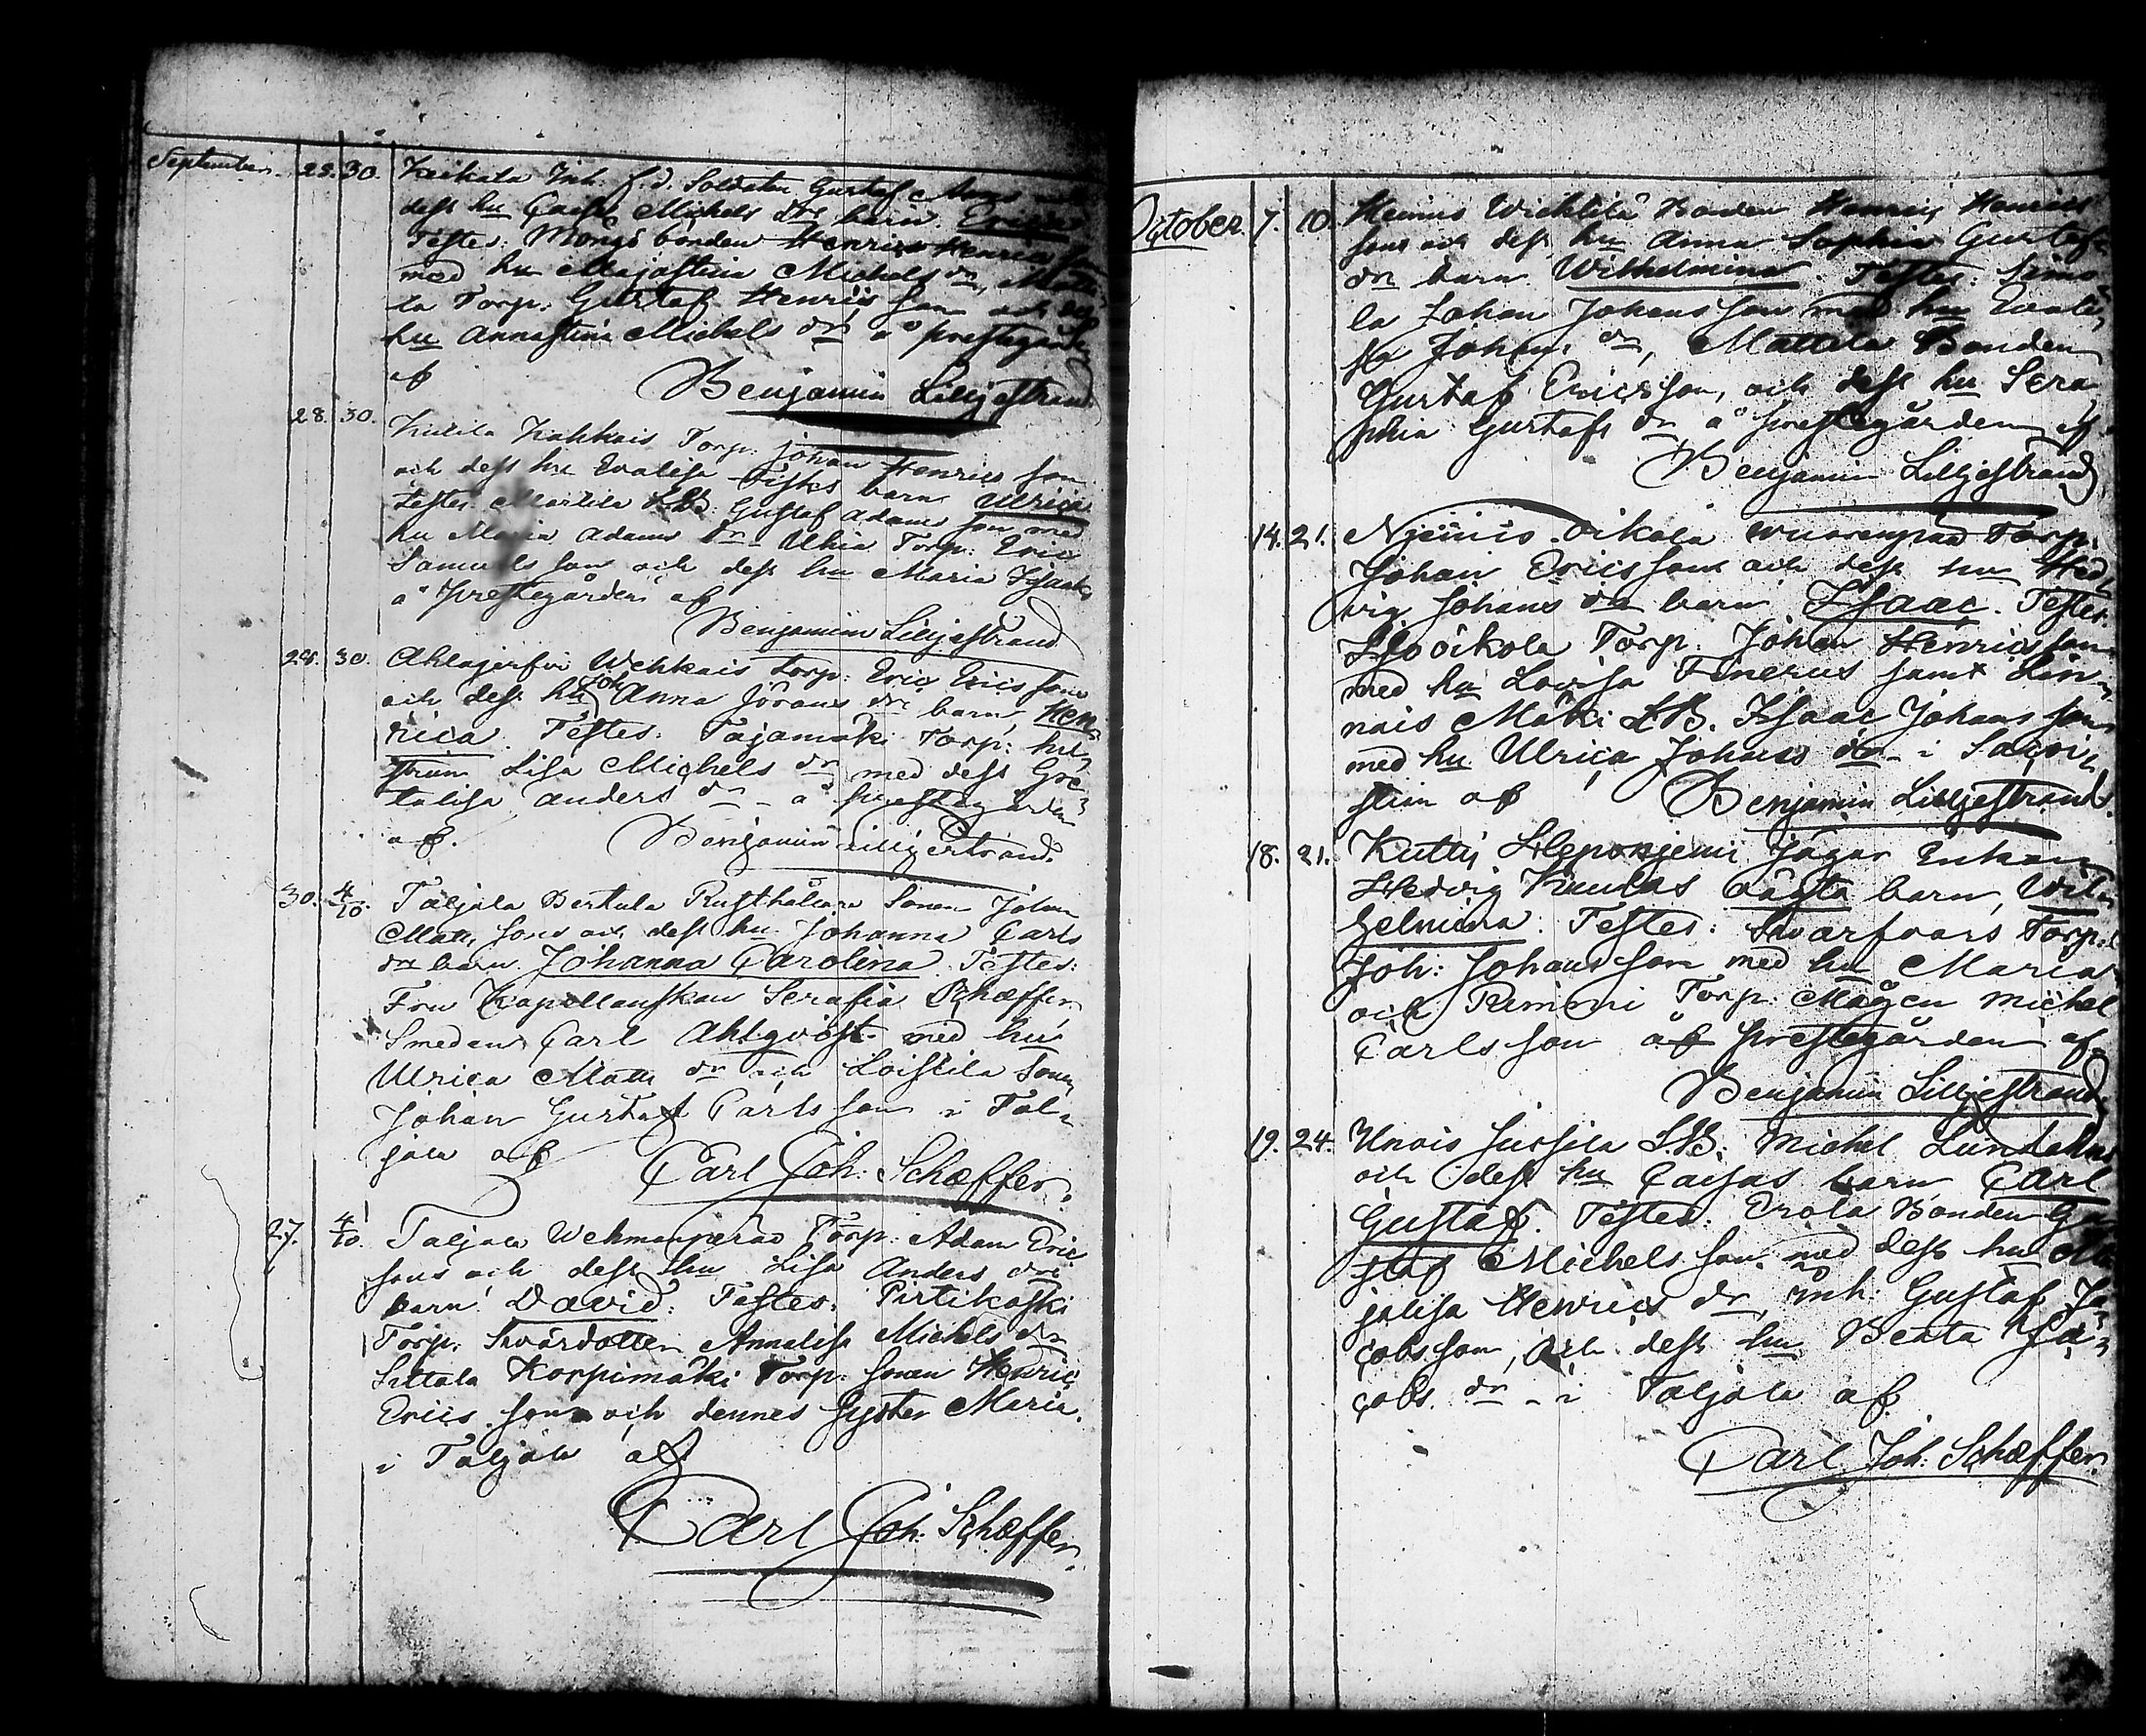 September. 28. 30. Keikala Inh. f.d. Soldaten Gustaf
dess hu Caisa Michels drs barn. Erica
Testes: Mongö bonden Henric Henrics son
med hu Majastina Michels dr,
la Torp. Gustaf Henrics son och dess
hu Annastina Michels dr å prestegården
af Benjamin Liljestrand
28. 30. Torp. Johan Henrics son
och dess hu Evalisa Fisks barn Ulrica
Testes Martila S.B. Gustaf Adams son med
hu Maria Adams dr Uhia Torp. Eric
Samuels son och dess hu Maria Isaaks
å Prestegården af
Benjamin Liljestrand
28. 30. Ahlajerfvi Wehkais Torp: Eric Erics sons
och dess hu Anna Jörans drs barn, Hen-
rica. Testes: Tajamäki Torp: hu-
strun Lisa Michels dr med dess Gre-
talisa Anders dr - å prestegården
af. Benjamin Liljestrand.
30. 4/10. Taljala Bertula Rusthållare Sonen Johan
Matts sons och dess hu Johanna Carls
drs barn Johanna Carolina. Testes:
Fru Kapellanskan Serafia Schæffer
Smeden Carl Ahlqvist med hu
Ulrica Matts dr och Loistila Sonen
Johan Gustaf Carls son i Tal-
jala af
Carl Joh. Schæffer.
27. 4/10. Taljala Wehmanperae Torp. Adam Eric
sons och dess hu Lisa Anders drs
barn David. Testes. Pirtikoski
Torp. Swärdotter Annalisa Michels dr
Sattala Korpimäki Torp. sonen Henric
Erics son och dennes syster Maria.
i Taljala af
Carl Joh. Schæffer.
October. 7. 10. Heinus Wichtila Bonden Henric Henrics
sons och dess hu Anna Sophia Gustafs
drs barn Wilhelmina. Testes: Simo-
la Johan Johans son med hu Evali-
sa Johans dr, Mattila Bonden
Gustaf Ericsson, och dess hu Sera-
phia Gustafs dr å prestegården af
Benjamin Liljestrand
14. 21. Niemis oikola wuorenpää Torp.
Johan Erics sons och dess hu Hed-
vig Johans drs barn Isaac. Testes
Iso oikola Torp. Johan Henrics son
med hu Lovisa Finerus samt Lin-
nais Mäki S.B. Isaac Johans son
med hu Ulrica Johans dr - i Savi-
stim af Benjamin Liljestrand.
18. 21. Kuttis Heponjemi Jägar Enkan
Hedvig Kuulas oägta barn, Wil-
helmina. Testes: Swarfvars Torp.
Joh: Johans son med hu Maria
och Remmi Torp. Mågen Michel
Carls son å prestegården af
Benjamin Liljestrand
19. 24. Unois Jussila S.B. Michel Lundahns
och dess hu Caisas barn Carl
Gustaf. Testes. Erola Bonden Gu-
staf Michels son med dess hu Ma-
jalisa Henrics dr, inh. Gustaf Ja-
cobs son, och dess hu Beata Ja-
cobs dr - i Taljala af
Carl Joh. Schæffer.